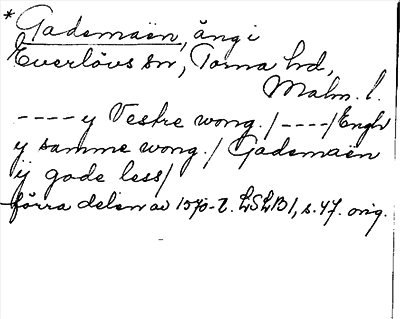 * Gademaën, äng i
Everlövs sn, Torna hd,
Malm. l.
---- y Vestre wong. / ---- / Englv
y samme wong. / Gademaën
ij gode less /
förra delen av 1570-t. LSLB 1, s. 47. orig.